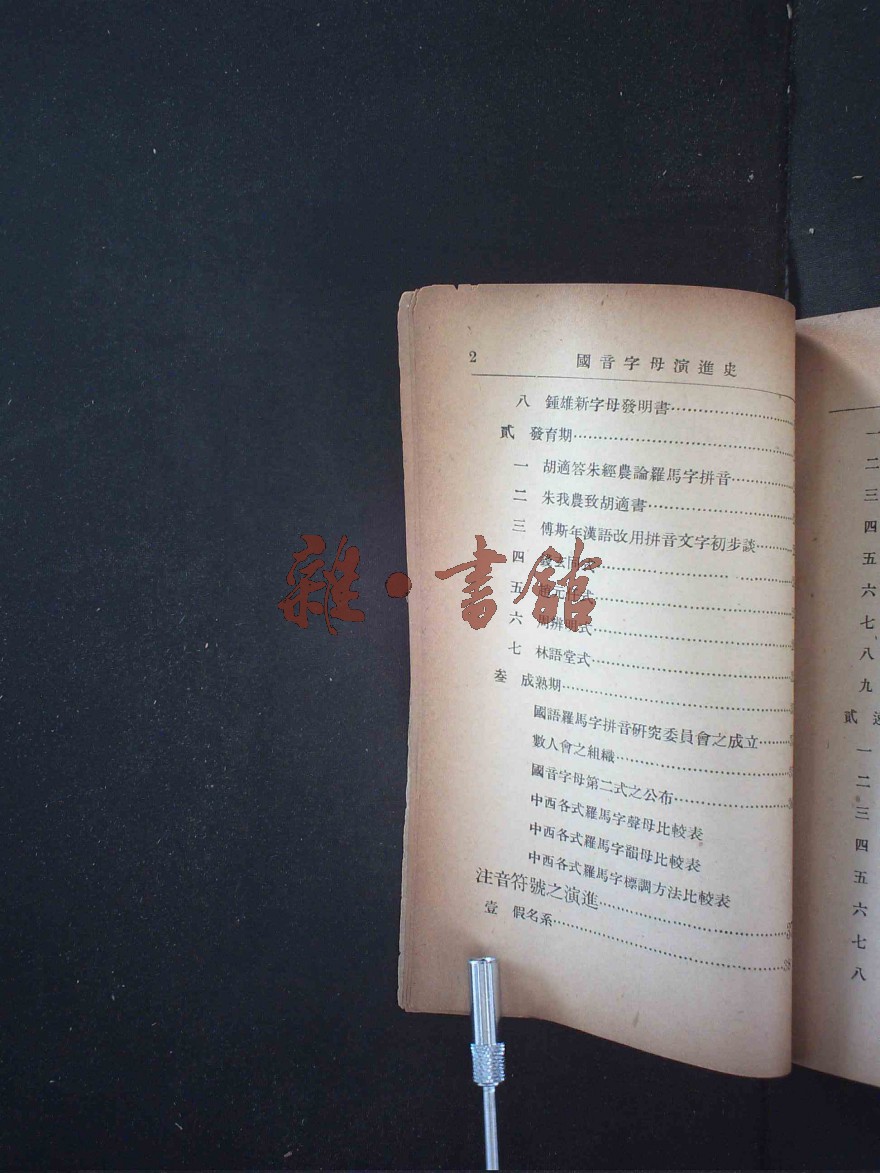 2 國音字母演進史
八 鍾雄新字母發明書
貳 發育期
一 胡適答朱經農論羅馬字拼音
二 朱我農致胡適書
三 傅斯年漢語改用拼音文字初步談
四
五 式
六 周辨明式
七 林語堂式
叁 成熟期
國語羅馬字拼音研究委員會之成立
數人會之組織
國音字母第二式之公布
中西各式羅馬字聲母比較表
中西各式羅馬字韻母比較表
中西各式羅馬字標調方法比較表
注音符號之演進
壹 假名系
雜·書館
一
二
三
四
五
六
七
八
九
貳
一
二
三
四
五
六
七
八